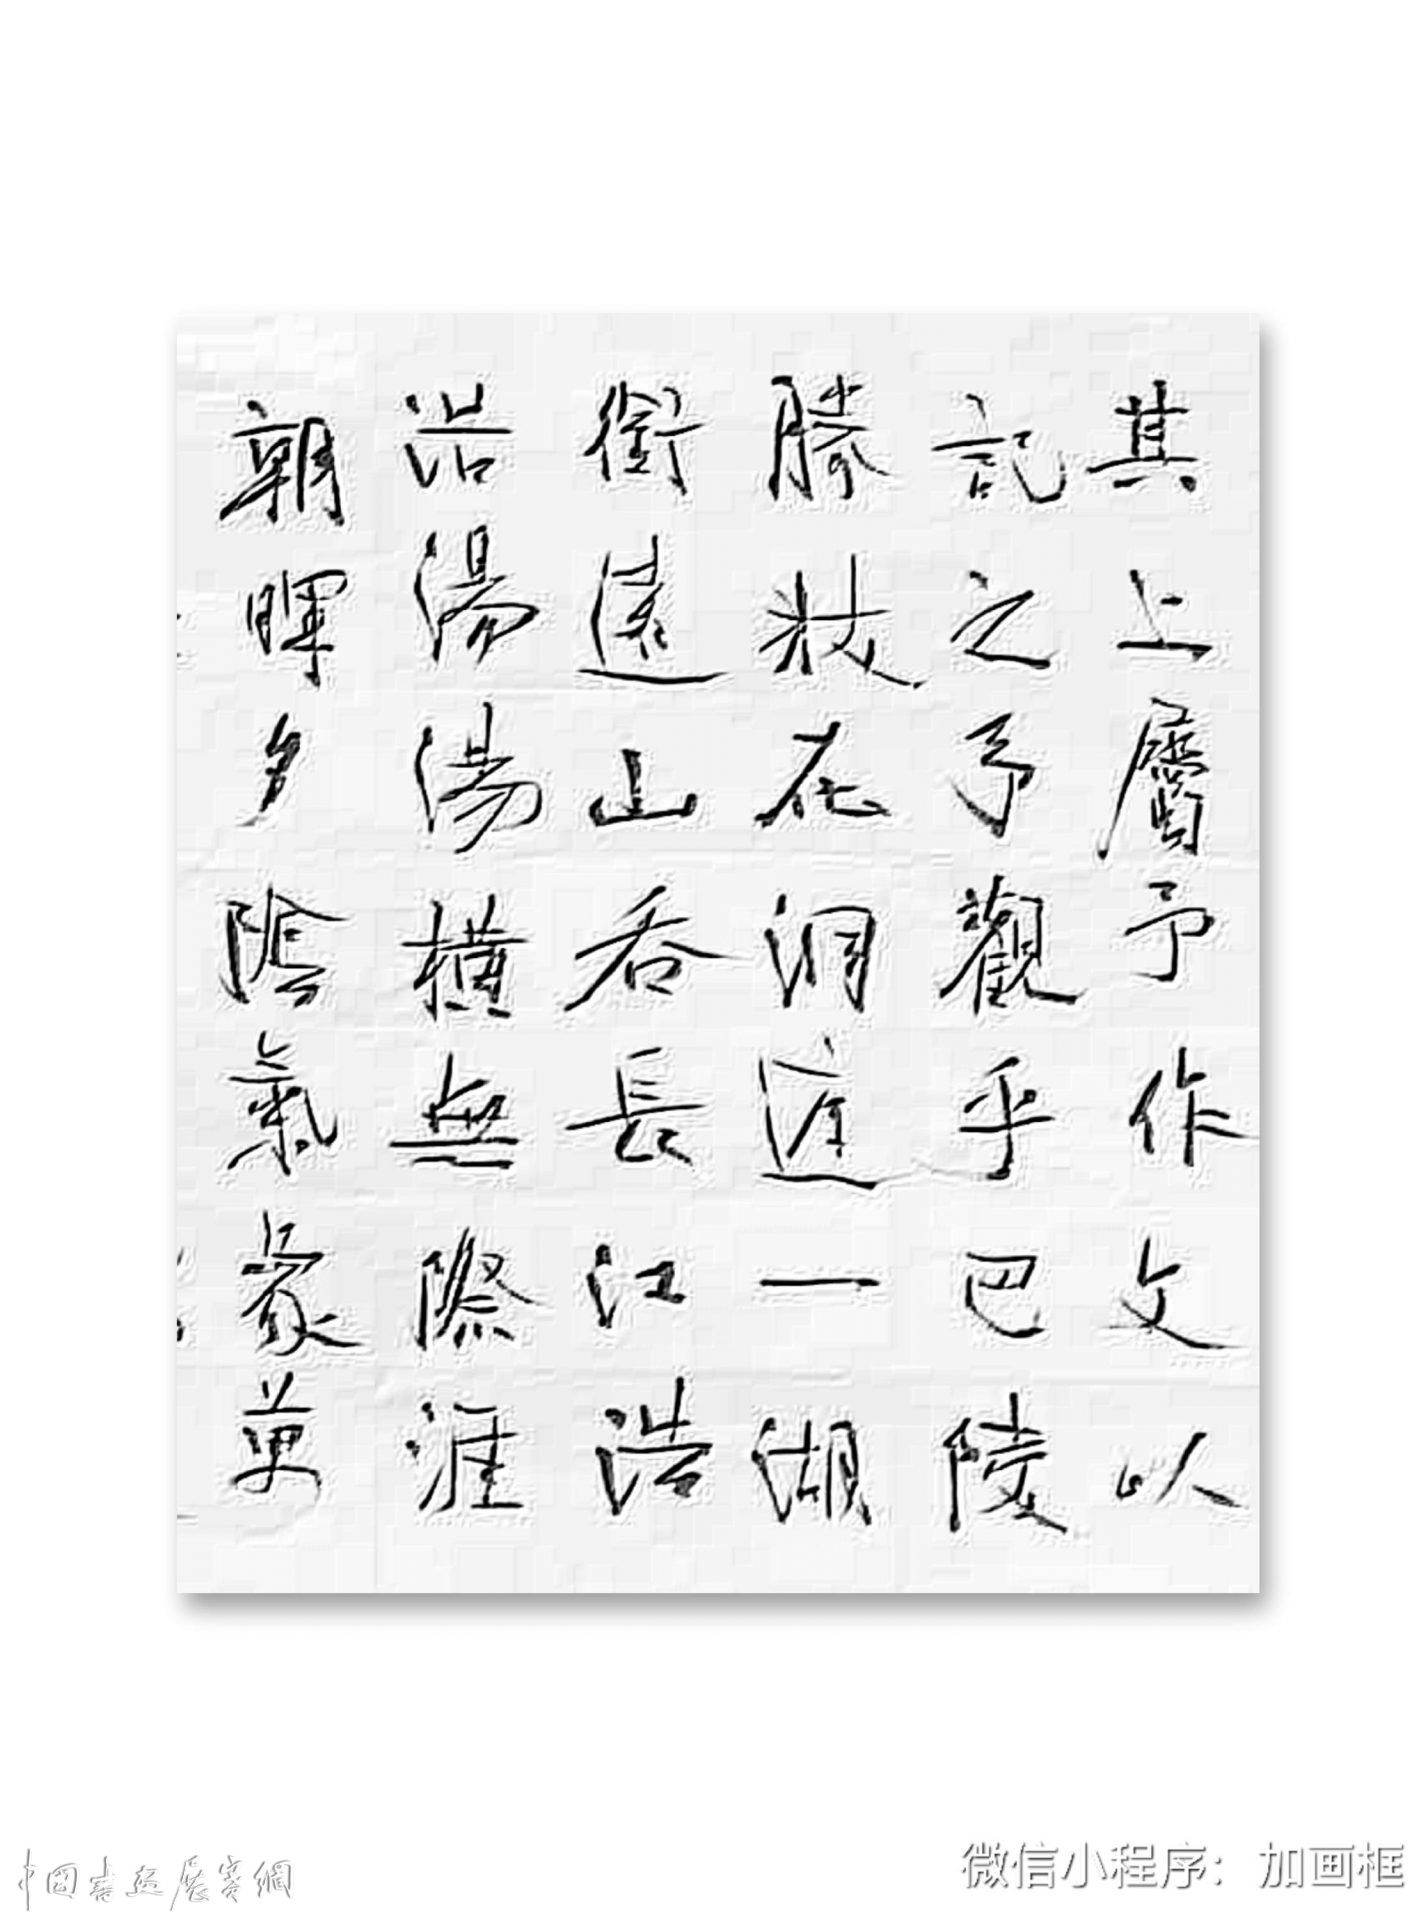 其上屬予作文以
記之予觀乎巴陵
勝狀在洞庭一湖
銜遠山吞長江浩
浩湯湯橫無際涯
朝暉夕陰氣象萬
中國書畫展賽網
微信小程序：加画框